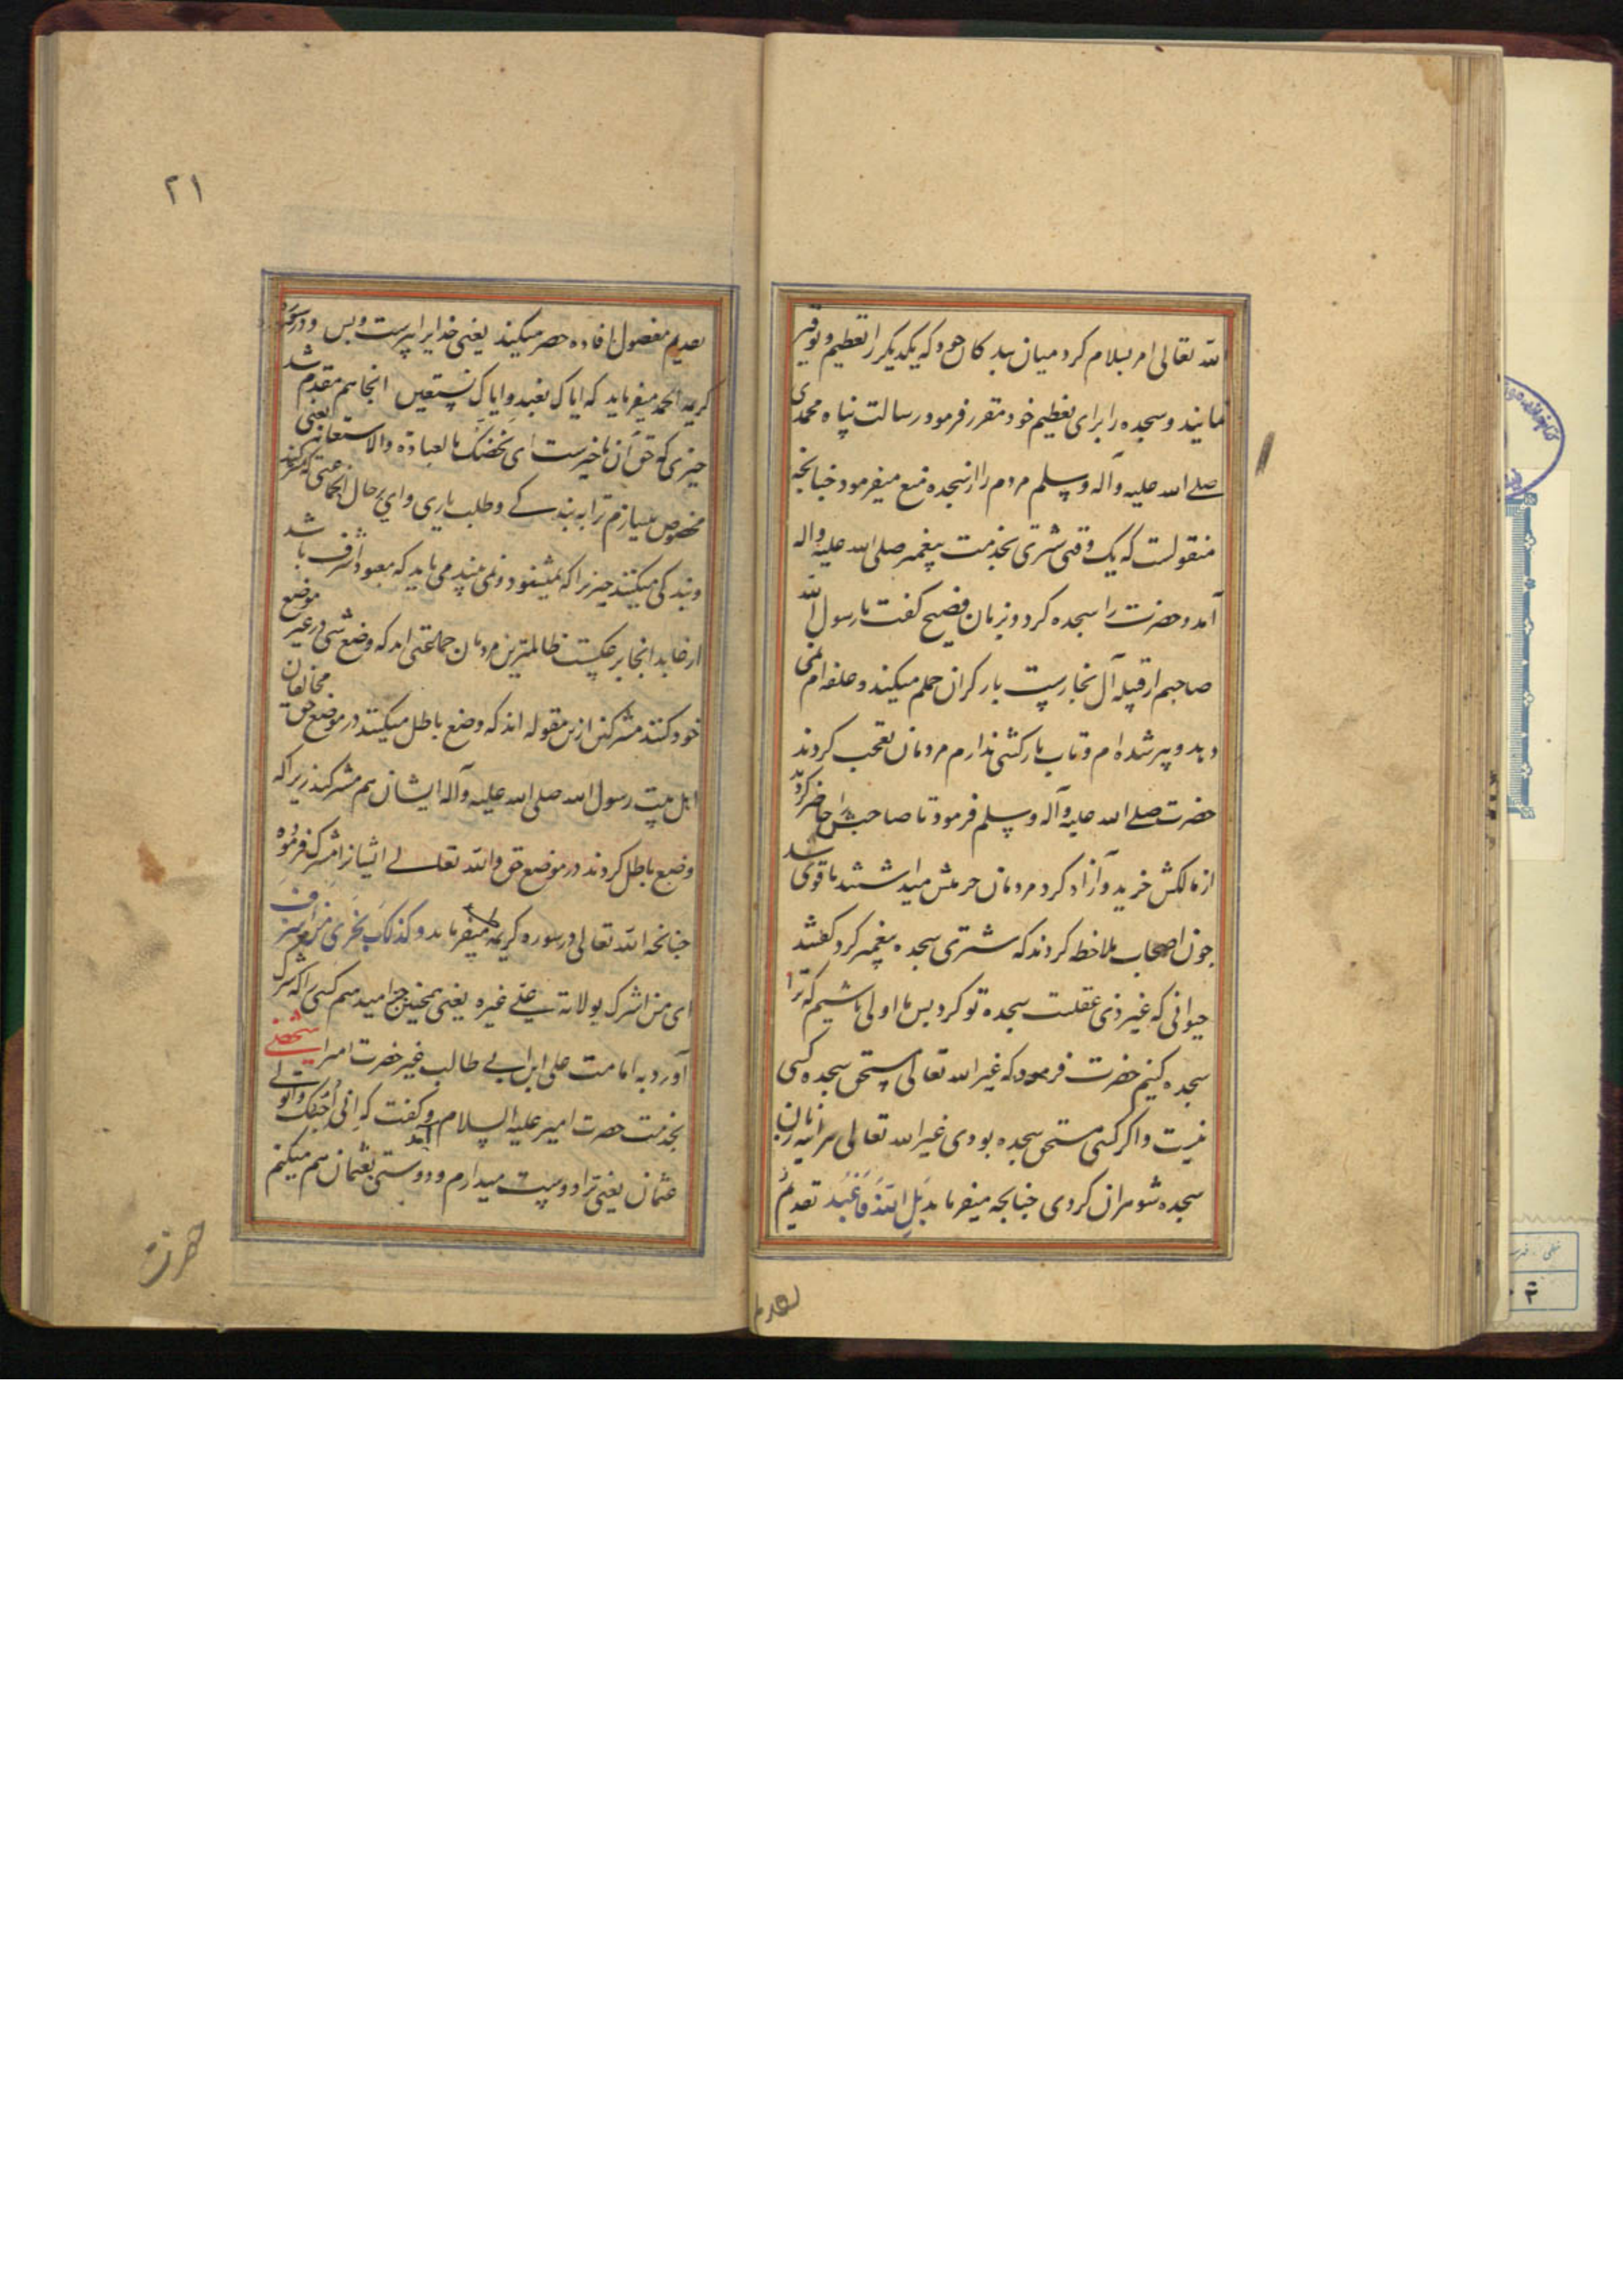 الله تعالی امر بسلام کرد میان بندکان خود که یکدیکر را تعظیم و توقیر
نمایند و سجده را برای تعظیم خود مقرر فرمود رسالت پناه محمدی
صلی الله علیه وآله وسلم مردم را از سجده منع میفرمود چنانچه
منقولست که یک وقتی شتری بخدمت پیغمبر صلی الله علیه واله
آمد و حضرت را سجده کرد و بزبان فصیح کفت یا رسول الله
صاحبم از قبیله آل نجارست بار کران حملم میکند و علفه ام نمی
دهد و پیر شده ام و تاب بارکشی ندارم مردمان تعجب کردند
حضرت صلی الله علیه وآله وسلم فرمود تا صاحبش را حاضر کردند
از مالکش خرید و آزاد کرد مردمان حرمتش میداشتند تا قوی شد
چون اصحاب ملاحظه کردند که شتری سجده پیغمبر کرد کفتند
حیوانی که غیر ذی عقلست سجده تو کرد پس ما اولی باشیم که ترا
سجده کنیم حضرت فرمود که غیر الله تعالی مستحق سجده کسی
نیست و اکر کسی مستحق سجده بودی غیر الله تعالی هراینه زنان
سجده شوهران کردی چنانچه میفرماید بل الله فاعبد تقدیم
تقدیم
۲۱
تقدیم مفعول افاده حصر میکند یعنی خدایرا پرست و بس و در سوره
کریمه الحمد میفرماید که ایاک نعبد وایاک نستعین انجا هم مقدم شد
چیزی که حق آن تاخیرست ای نخصک بالعبادة والاستعانة یعنی
مخصوص میسازم ترا به بندکی و طلب یاری وای بر حال جماعتی که شرک کنند
و بندکی میکنند چیزیرا که نمیشنود و نمی بیند می باید که معبود اشرف باشد
از عابد اینجا برعکست ظالمترین مردمان جماعتی اند که وضع شی در غیر موضع
خود کنند مشرکین ازین مقوله اند که وضع باطل میکنند در موضع حق مخالفان
اهل بیت رسول الله صلی الله علیه وآله ایشان هم مشرکند زیرا که
وضع باطل کردند در موضع حق والله تعالی ایشانرا مشرک فرموده
چنانچه الله تعالی در سوره کریمه طه میفرماید وکذلک نجزی من اسرف
ای من اشرک بولایة علی غیره یعنی همچنین جزا میدهم کسی را که شرک
آورد به امامت علی ابن ابی طالب غیر حضرت امیرا شخصی
بخدمت حضرت امیر علیه السلام آمد و کفت که انی احبک واتولی
عثمان یعنی ترا دوست میدارم و دوستی بعثمان هم میکنم
حضرت